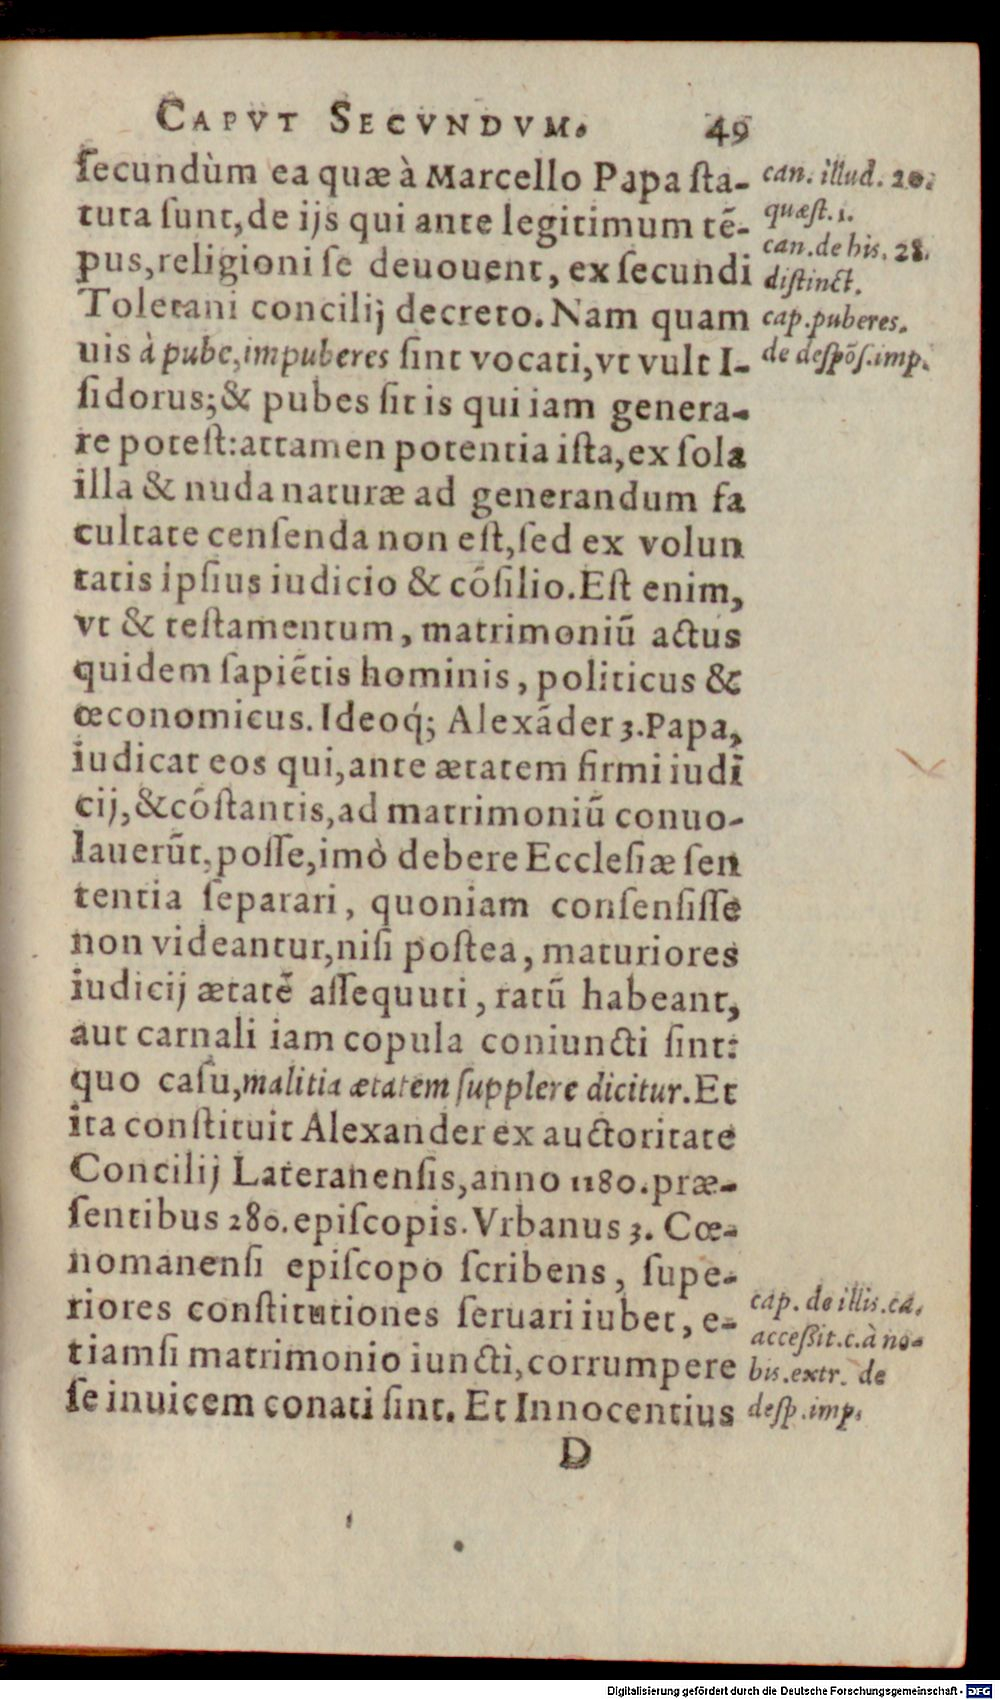 CAPVT SECVNDVM. 49
ſecundùm ea quæ à Marcello Papa ſta-
tuta ſunt, de ijs qui ante legitimum tẽ-
pus, religioni ſe deuouent, ex ſecundi
Toletani concilij decreto. Nam quam
uis à pube, impuberes ſint vocati, vt vult I-
ſidorus; & pubes ſit is qui iam genera-
re poteſt: attamen potentia iſta, ex ſola
illa & nuda naturæ ad generandum fa
cultate cenſenda non eſt, ſed ex volun
tatis ipſius iudicio & cõſilio. Eſt enim,
vt & teſtamentum, matrimoniũ actus
quidem ſapiẽtis hominis, politicus &
œconomicus. Ideoq́; Alexãder 3. Papa,
iudicat eos qui, ante ætatem firmi iudi
cij, & cõſtantis, ad matrimoniũ conuo-
lauerũt, poſſe, imò debere Eccleſiæ ſen
tentia ſeparari, quoniam conſenſiſſe
non videantur, niſi poſtea, maturiores
iudicij ætatẽ aſſequuti, ratũ habeant,
aut carnali iam copula coniuncti ſint:
quo caſu, malitia ætatem ſupplere dicitur. Et
ita conſtituit Alexander ex auctoritate
Concilij Lateranenſis, anno 1180. præ-
ſentibus 280. epiſcopis. Vrbanus 3. Cœ-
nomanenſi epiſcopo ſcribens, ſupe-
riores conſtitutiones ſeruari iubet, e-
tiamſi matrimonio iuncti, corrumpere
ſe inuicem conati ſint. Et Innocentius
D
can. illud. 20.
quæſt. 1.
can. de his. 28.
diſtinct.
cap. puberes.
de deſpõſ. imp.
cap. de illis. ca.
acceßit. c. à no-
bis. extr. de
deſp. imp.
Digitalisierung gefördert durch die Deutsche Forschungsgemeinschaft - DFG